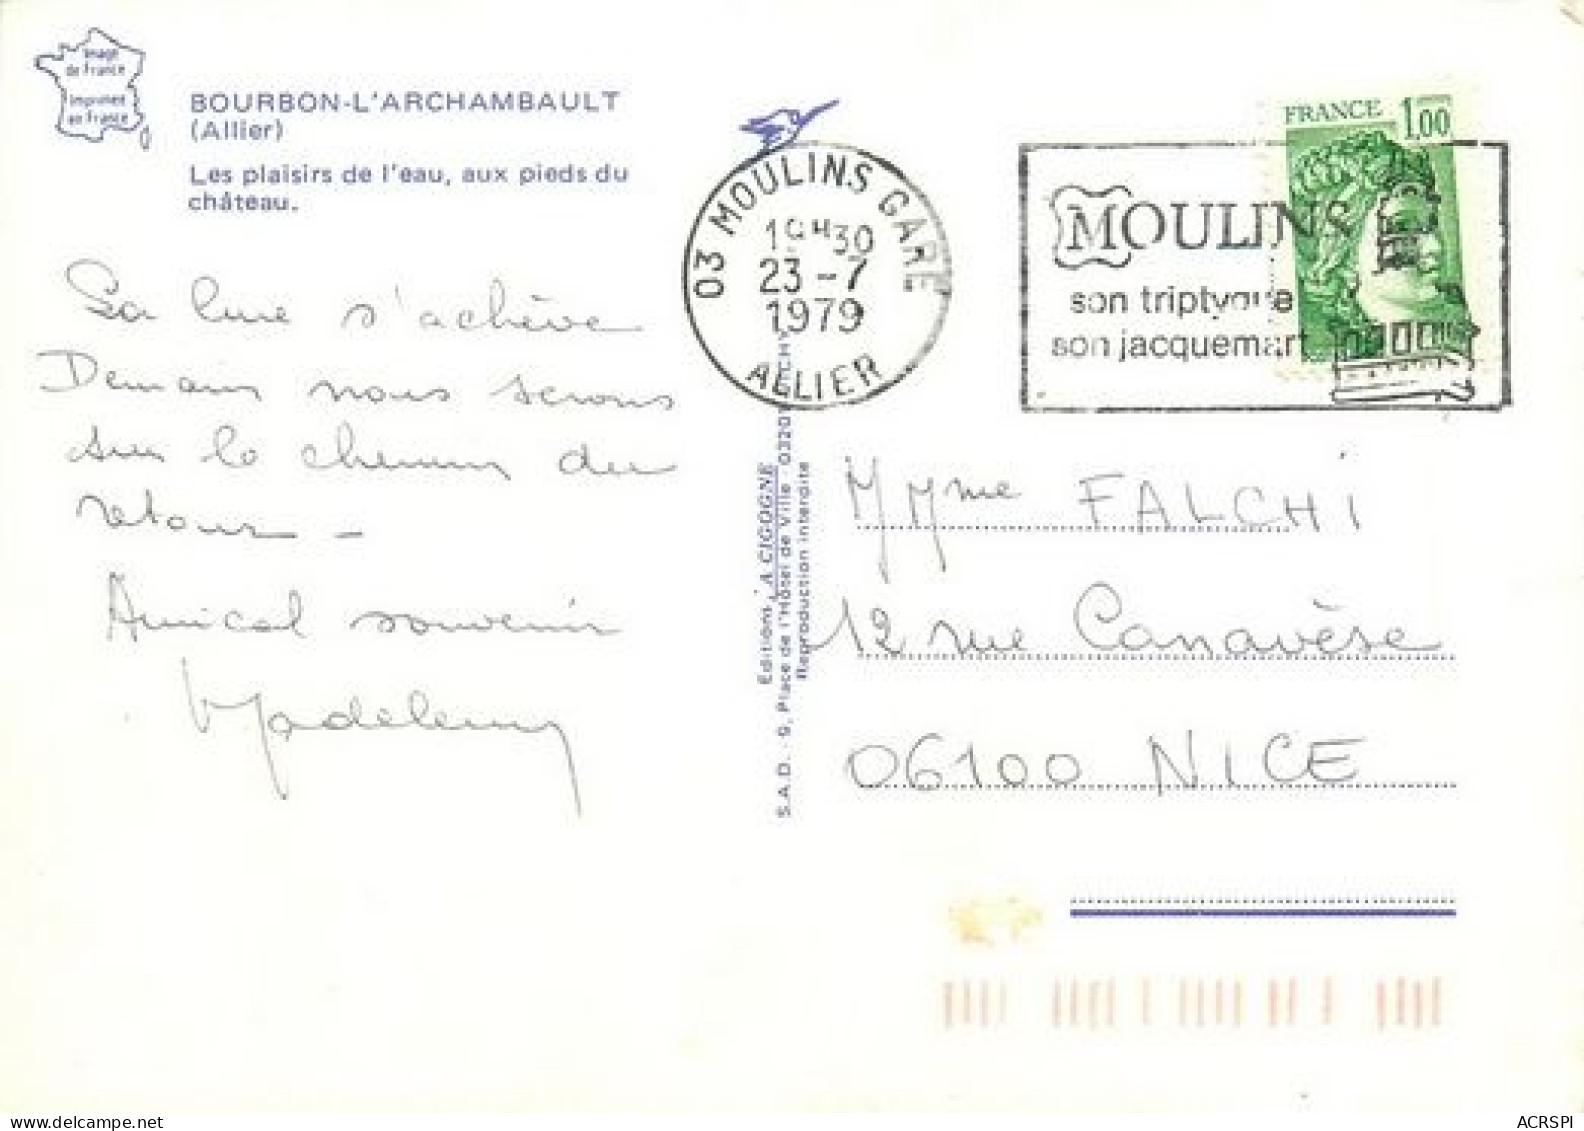 Image
de France
Imprimée
en France
BOURBON-L'ARCHAMBAULT
(Allier)
Les plaisirs de l'eau, aux pieds du
château.
La cure s'achève
Demain nous serons
sur le chemin du
retour -
Amical souvenir
03 MOULINS GARE
19H30
23 -7
1979
ALLIER
MOULINS
son triptyque
son jacquemart
FRANCE 1,00
Editions LA CIGOGNE
S.A.D. - 9, Place de l'Hôtel de Ville - 0320
Reproduction interdite
M Mme FALCHI
12 rue Canavèse
06100 NICE
ACRSPI